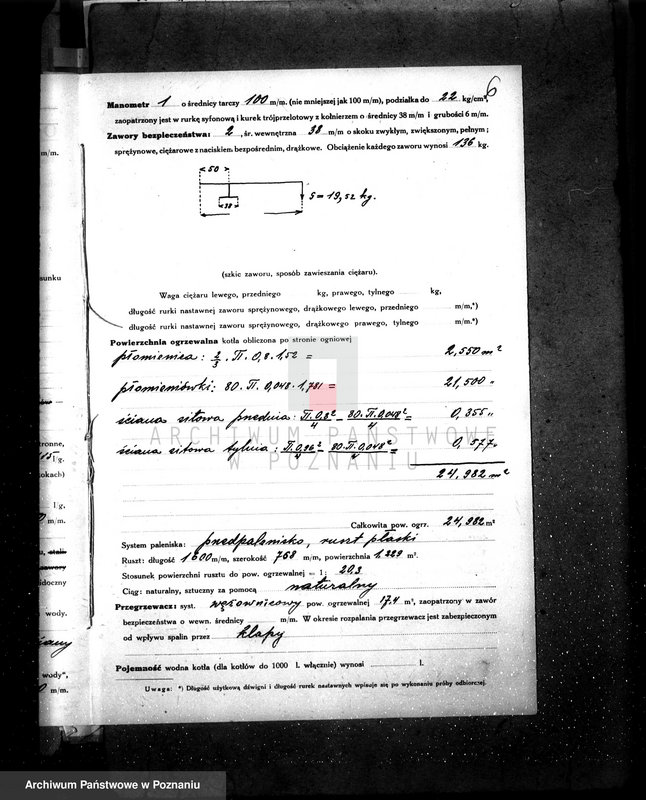 6
Manometr 1 o średnicy tarczy 100 m/m. (nie mniejszej jak 100 m/m), podziałka do 22 kg/cm²,
zaopatrzony jest w rurkę syfonową i kurek trójprzelotowy z kołnierzem o średnicy 38 m/m i grubości 6 m/m.
Zawory bezpieczeństwa: 2, śr. wewnętrzna 38 m/m o skoku zwykłym, zwiększonym, pełnym;
sprężynowe, ciężarowe z naciskiem bezpośrednim, drążkowe. Obciążenie każdego zaworu wynosi 136 kg.
50
38
S = 19,52 kg.
(szkic zaworu, sposób zawieszania ciężaru).
Waga ciężaru lewego, przedniego kg, prawego, tylnego kg,
długość rurki nastawnej zaworu sprężynowego, drążkowego lewego, przedniego m/m,*)
długość rurki nastawnej zaworu sprężynowego, drążkowego prawego, tylnego m/m.*)
Powierzchnia ogrzewalna kotła obliczona po stronie ogniowej
płomienica: 2/3 . π . 0,8 . 1,52 = 2,550 m²
płomieniówki: 80 . π . 0,048 . 1,781 = 21,500 "
ściana sitowa przednia: π.0,8²/4 - 80.π.0,048²/4 = 0,355 "
ściana sitowa tylnia: π.0,96²/4 - 80.π.0,048²/4 = 0,577 "
24,982 m²
ARCHIWUM PAŃSTWOWE
W POZNANIU
Całkowita pow. ogrz. 24,982 m²
System paleniska: przedpalenisko, ruszt płaski
Ruszt: długość 1600 m/m, szerokość 768 m/m, powierzchnia 1,229 m².
Stosunek powierzchni rusztu do pow. ogrzewalnej = 1: 20,3
Ciąg: naturalny, sztuczny za pomocą naturalny
Przegrzewacz: syst. wężownicowy pow. ogrzewalnej 17,4 m², zaopatrzony w zawór
bezpieczeństwa o wewn. średnicy m/m. W okresie rozpalania przegrzewacz jest zabezpieczonym
od wpływu spalin przez klapy
Pojemność wodna kotła (dla kotłów do 1000 l. włącznie) wynosi l.
Uwaga: *) Długość użytkową dźwigni i długość rurek nastawnych wpisuje się po wykonaniu próby odbiorczej.
Archiwum Państwowe w Poznaniu